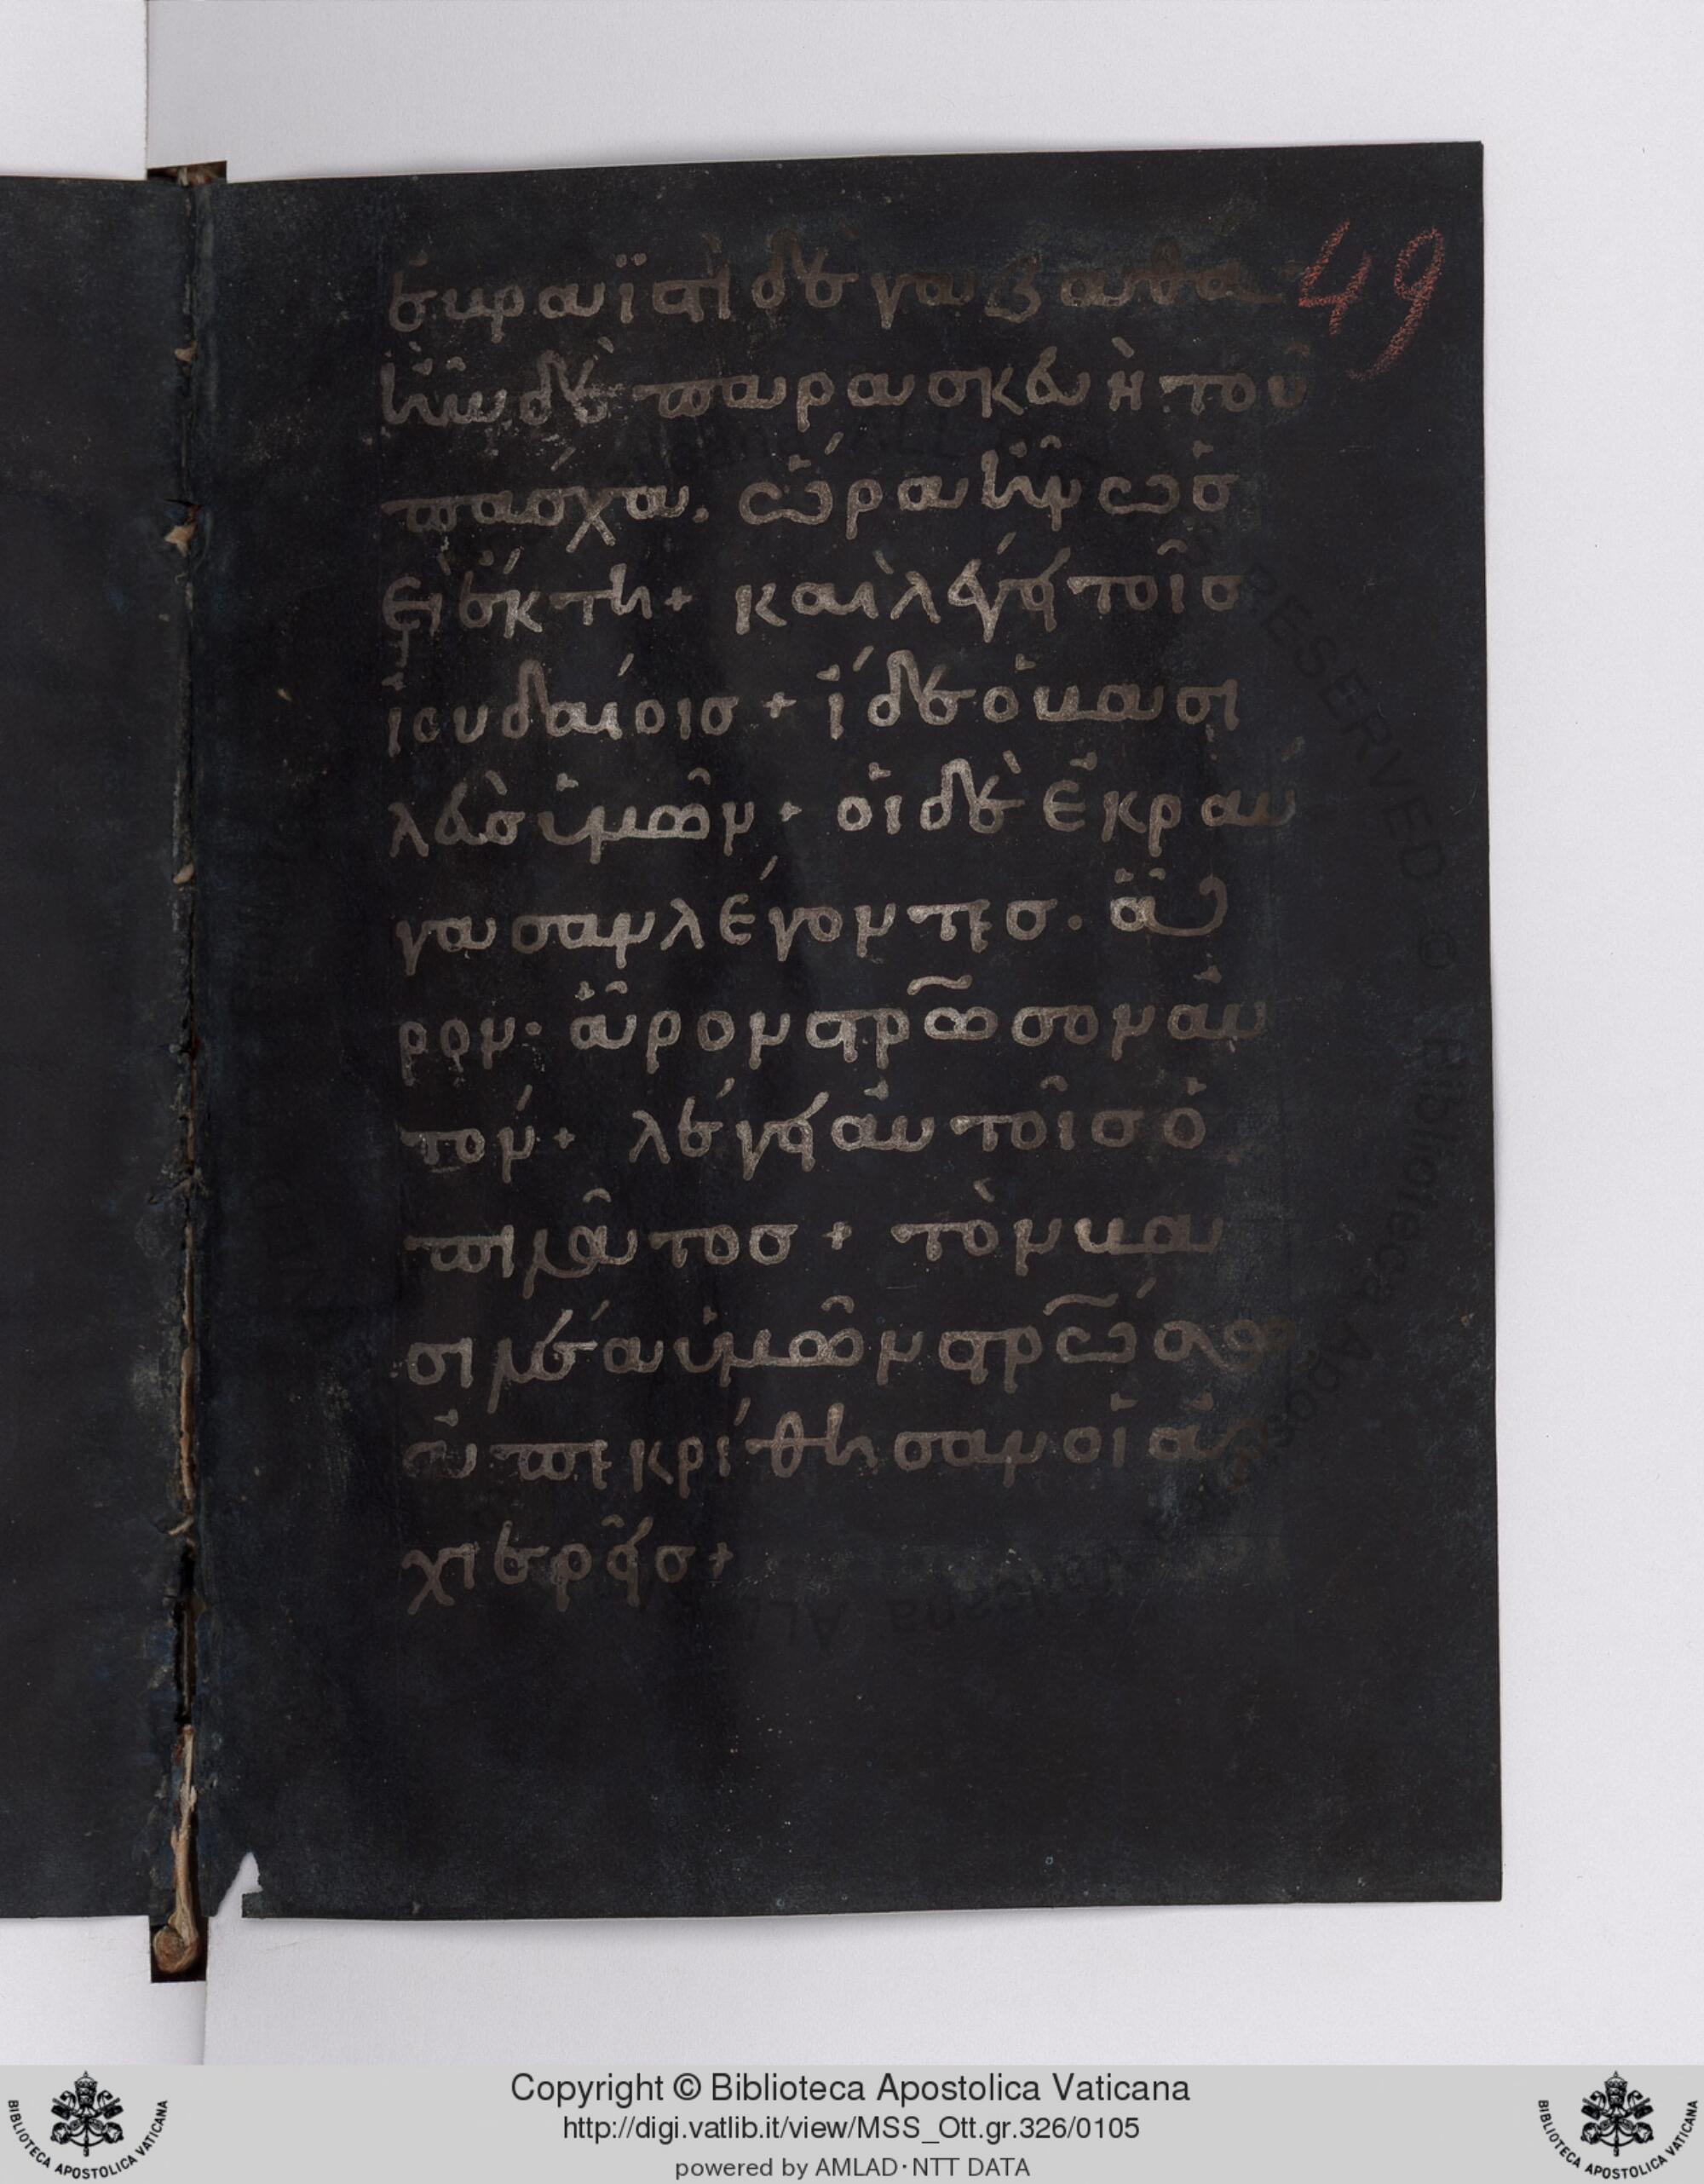 49
ἑβραϊστὶ δὲ γαβαθα
ἦν δὲ παρασκευὴ τοῦ
πάσχα. ὥρα ἦν ὡσ
εὶ ἕκτη + καὶ λέγει τοῖσ
ἰουδαίοισ + ἴδε ὁ βασι
λεὺσ ὑμῶν + οἱ δὲ ἐκραύ
γασαν λέγοντεσ. ἆ
ρον. ἆρον στ̅ρ̅ωσον αὐ
τόν + λέγει αὐτοῖσ ὁ
πιλᾶτοσ + τὸν βα
σιλέα ὑμῶν στ̅ρ̅ώσω
ἀπεκρίθησαν οἱ ἀρ
χιερεῖσ +
Copyright © Biblioteca Apostolica Vaticana
http://digi.vatlib.it/view/MSS_Ott.gr.326/0105
powered by AMLAD·NTT DATA
BIBLIOTECA APOSTOLICA VATICANA
BIBLIOTECA APOSTOLICA VATICANA